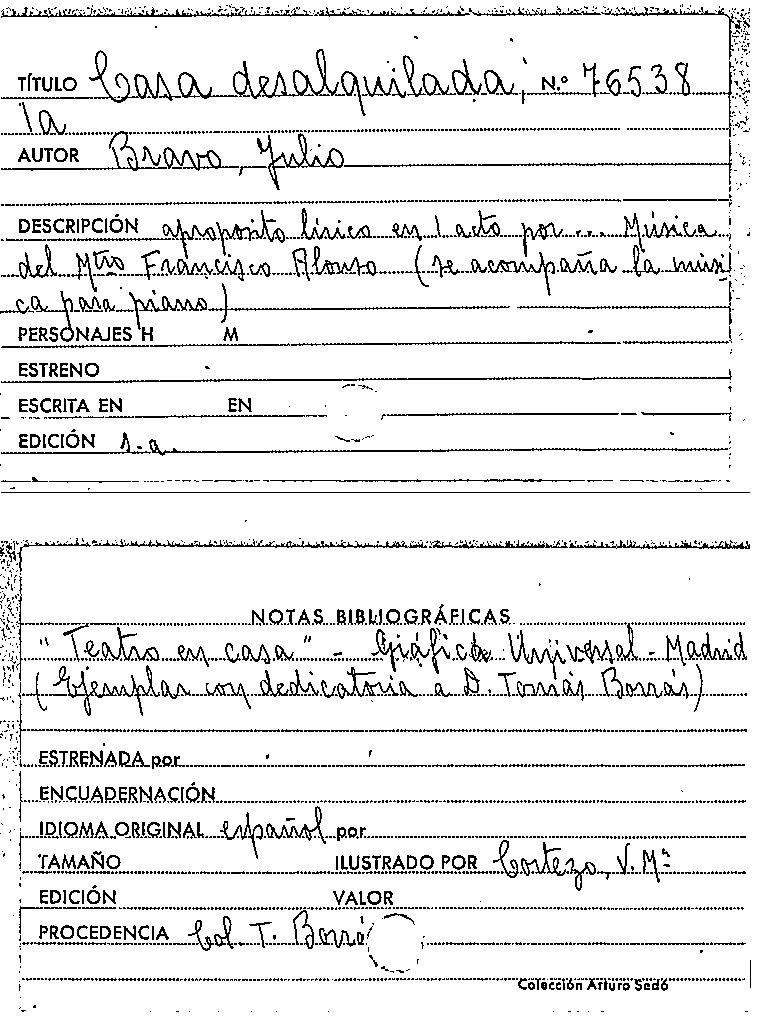 TÍTULO Casa desalquilada, N.º 76538
la
AUTOR Bravo, Julio
DESCRIPCIÓN apropósito lírico en 1 acto por ... Música
del Mtro Francisco Alonso (se acompaña la músi
ca para piano)
PERSONAJES H M
ESTRENO
ESCRITA EN EN
EDICIÓN s.a.
NOTAS BIBLIOGRÁFICAS
"Teatro en casa" - Gráfica Universal - Madrid
(Ejemplar con dedicatoria a D. Tomás Borrás)
ESTRENADA por
ENCUADERNACIÓN
IDIOMA ORIGINAL español por
TAMAÑO ILUSTRADO POR Cortezo, V. Mª
EDICIÓN VALOR
PROCEDENCIA Col. T. Borrá
Colección Arturo Sedó